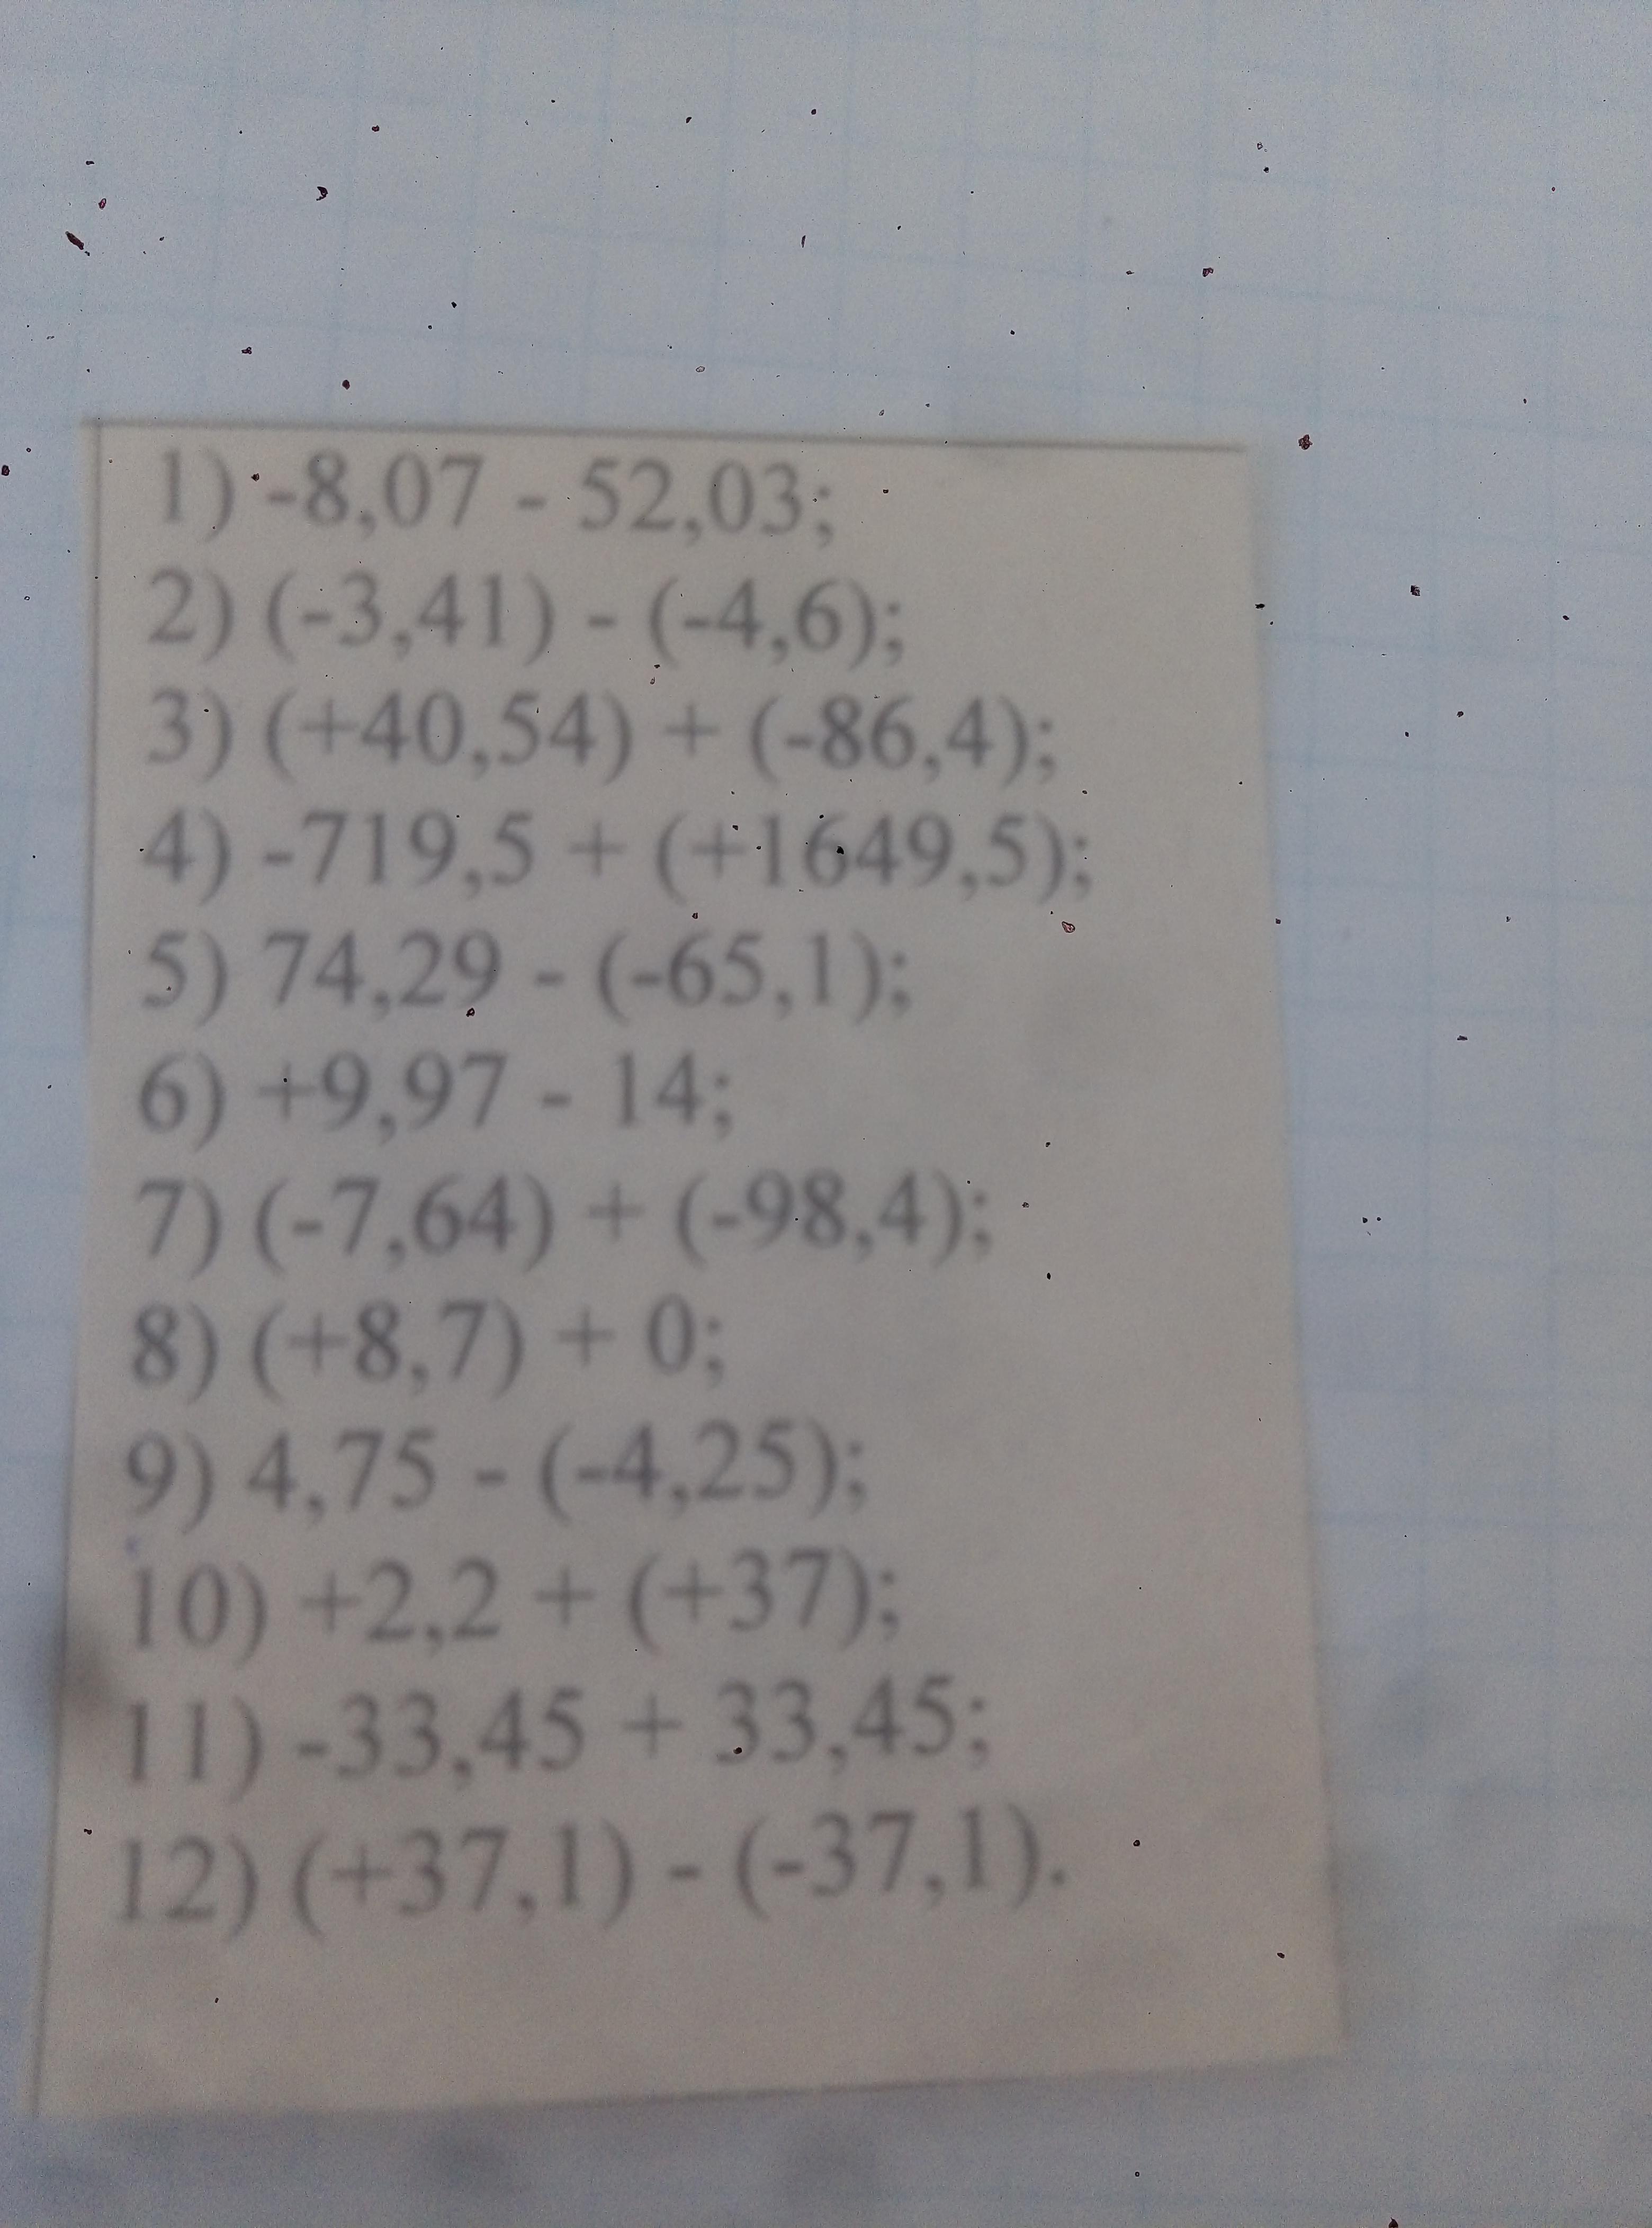 1) -8,07 - 52,03;
2) (-3,41) - (-4,6);
3) (+40,54) + (-86,4);
4) -719,5 + (+1649,5);
5) 74,29 - (-65,1);
6) +9,97 - 14;
7) (-7,64) + (-98,4);
8) (+8,7) + 0;
9) 4,75 - (-4,25);
10) +2,2 + (+37);
11) -33,45 + 33,45;
12) (+37,1) - (-37,1).